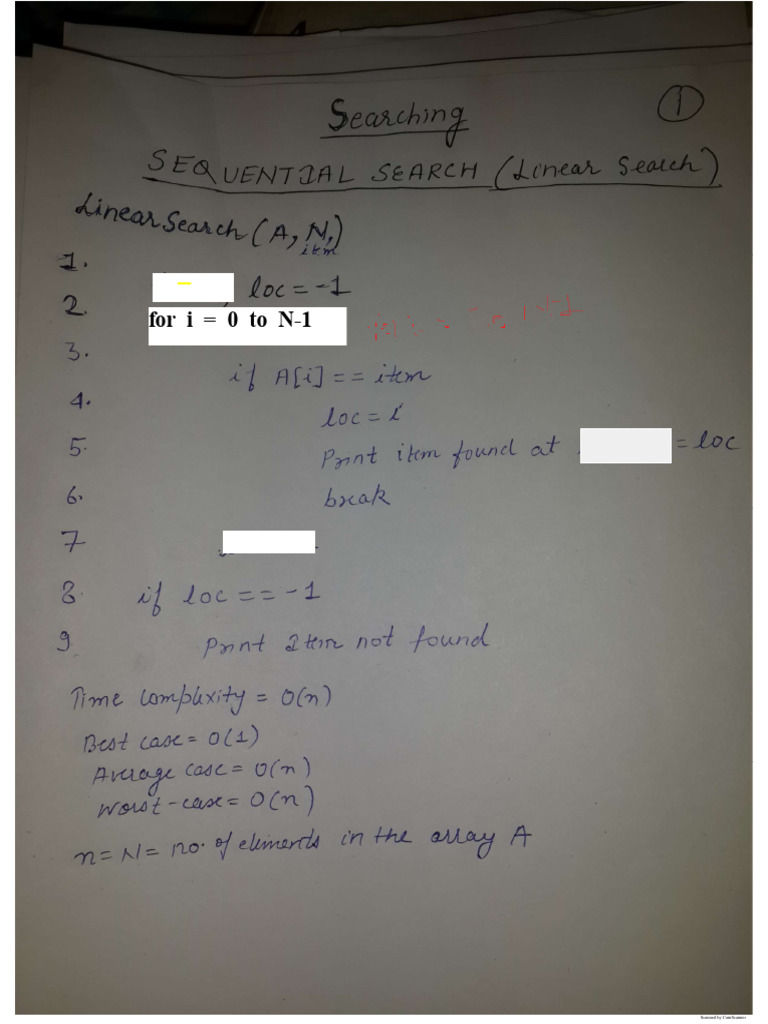 Searching
1
SEQUENTIAL SEARCH (Linear Search)
LinearSearch(A, N, item)
1.
loc = -1
2.
for i = 0 to N-1
3.
if A[i] == item
4.
loc = i
5. Print item found at = loc
6. break
7
8. if loc == -1
9 Print Item not found
Time complexity = O(n)
Best case = O(1)
Average case = O(n)
Worst-case = O(n)
n = N = no. of elements in the array A
Scanned by CamScanner